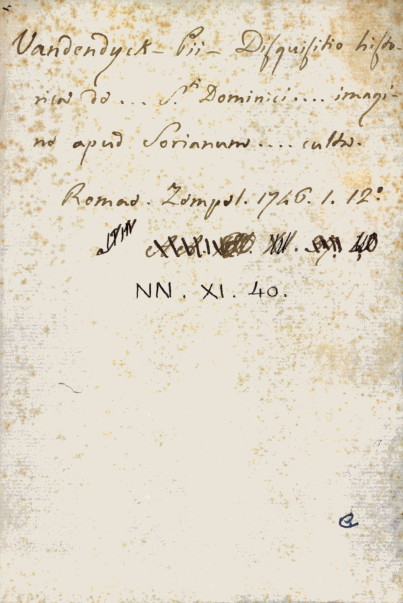 Vandendyck - Pii - Disquisitio histo-
rica de ... S.ti Dominici .... imagi-
ne apud Sorianum .... cultu.
Romae. Zempel. 1746. 1. 12°
NN. XI. 40.